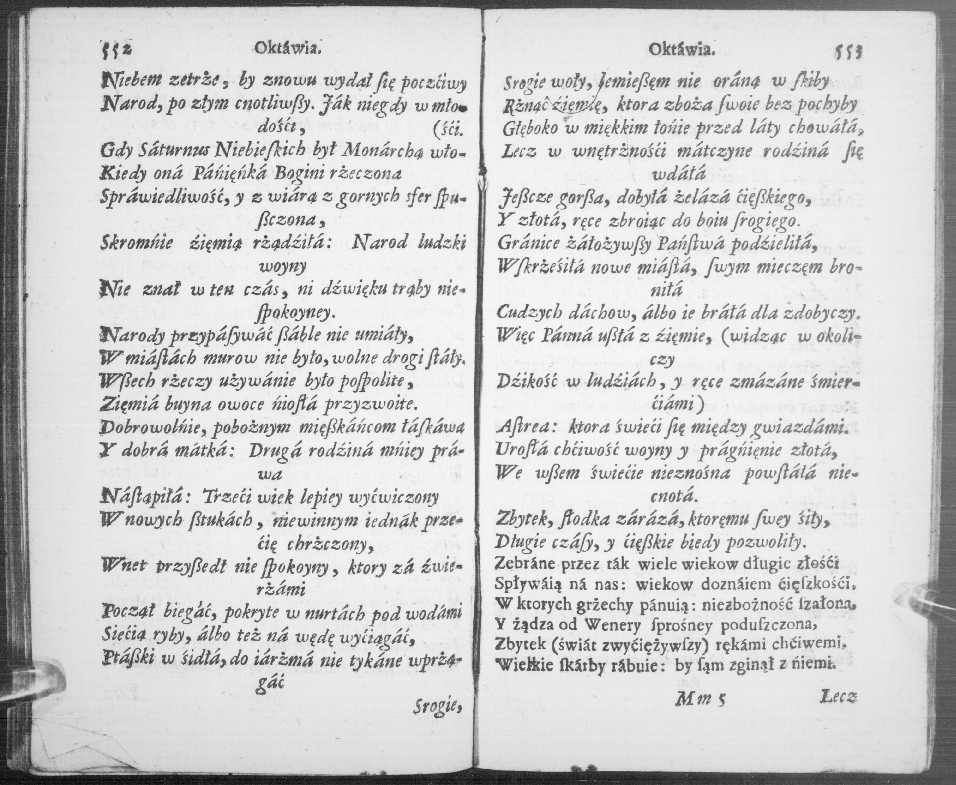 552 Oktáwia.
Niebem zetrże, by znowu wydał ſię poczćiwy
Narod, po złym cnotliwßy. Ják niegdy w mło-
dośćı, (śći.
Gdy Sáturnus Niebieſkich był Monárchą wło-
Kiedy oná Páńięńká Bogini rżeczona
Spráwiedliwość, y z wiárą z gornych sfer ſpu-
ßczona,
Skromńie źięmią rżądźiłá: Narod ludzki
woyny
Nie znał w ten czás, ni dźwięku trąby nie-
ſpokoyney.
Narody przypáſywáć ßáble nie umiáły,
W miáſtách murow nie było, wolne drogi ſtáły.
Wßech rżeczy używánie było poſpolite,
Zięmiá buyna owoce ńioſłá przyzwoite.
Dobrowolńie, pobożnym mięßkáńcom łáſkáwa
Y dobrá mátká: Drugá rodźiná mńiey prá-
wa
Náſtąpiłá: Trzeći wiek lepiey wyćwiczony
W nowych ßtukách, niewinnym iednák prze-
ćię chrżczony,
Wnet przyßedł nie ſpokoyny, ktory zá źwie-
rżámi
Począł biegáć, pokryte w nurtách pod wodámi
Siećią ryby, álbo też ná wędę wyćiągáć,
Ptáßki w śidłá, do iárżmá nie tykáne wprżą-
gáć
Srogie,
Oktáwia. 553
Srogie woły, lemießęm nie oráną w ſkiby
Rżnąć źięmię, ktora zboża ſwoie bez pochyby
Głęboko w miękkim łońie przed láty chowáłá,
Lecz w wnętrżnośći mátczyne rodźiná ſię
wdáłá
Jeßcze gorßa, dobyłá żelázá ćięßkiego,
Y złotá, ręce zbroiąc do boiu ſrogiego.
Gránice záłożywßy Páńſtwá podźieliłá,
Wſkrześiłá nowe miáſtá, ſwym mieczęm bro-
niłá
Cudzych dáchow, álbo ie bráłá dla zdobyczy.
Więc Pánná ußłá z źięmie, (widząc w okoli-
czy
Dźikość w ludźiách, y ręce zmázáne śmier-
ćiámi)
Aſtrea: ktora świeći ſię między gwiazdámi.
Uroſłá chćiwość woyny y prágńięnie złotá,
We wßem świećie nieznośna powſtáłá nie-
cnotá.
Zbytek, ſłodka zárázá, ktoręmu ſwey śiły,
Długie czáſy, y ćięßkie biedy pozwoliły.
Zebráne przez ták wiele wiekow długic złośći
Spływáią ná nas: wiekow doznáiem ćięſzkośći,
W ktorych grżechy pánuią: niezbożność ſzalona,
Y żądza od Wenery ſprośney poduſzczona,
Zbytek (świát zwyćiężywſzy) rękámi chćiwemi,
Wielkie ſkárby rábuie: by ſąm zginął z ńiemi.
M m 5 Lecz